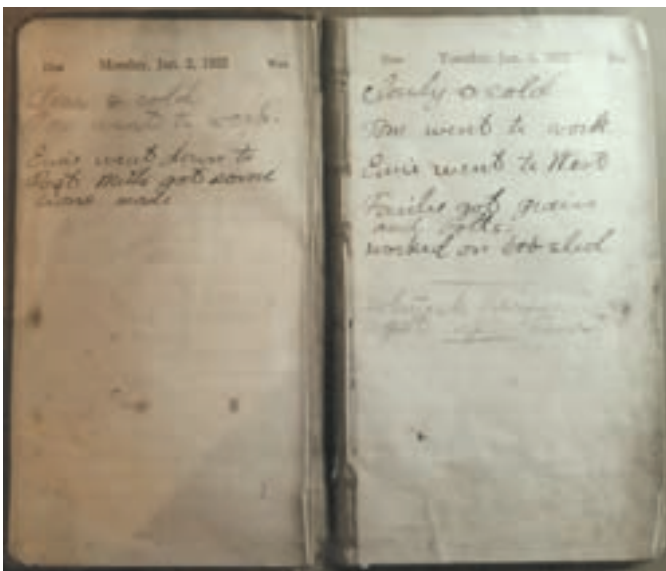 Monday, Jan. 2, 1922
Clear & cold
Tom went to work.
Ernie went down to
Post Mills got some
irons made
Tuesday, Jan. 3, 1922
Cloudy & cold
Tom went to work
Ernie went to West
Fairlee got grain
and bolts.
worked on bob sled